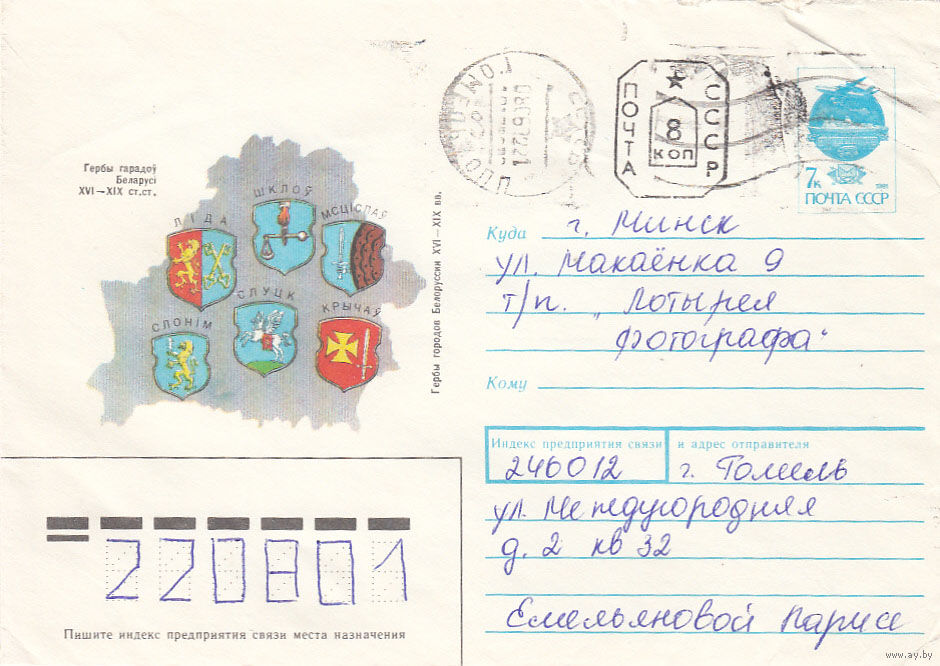 Гербы гарадоў
Беларусі
XVI–XIX ст.ст.
ЛІДА
ШКЛОЎ
МСЦІСЛАЎ
СЛОНІМ
СЛУЦК
КРЫЧАЎ
Гербы городов Белоруссии XVI–XIX вв.
ПОЧТА
СССР
8
КОП
7к
1991
ПОЧТА СССР
Куда г. Минск
ул. Макаёнка 9
т/п. „Лотырея
фотографа“
Кому
Индекс предприятия связи и адрес отправителя
246012 г. Гомель
ул. Междугородняя
д. 2 кв 32
Емельяновой Ларисе
220801
Пишите индекс предприятия связи места назначения
www.ay.by